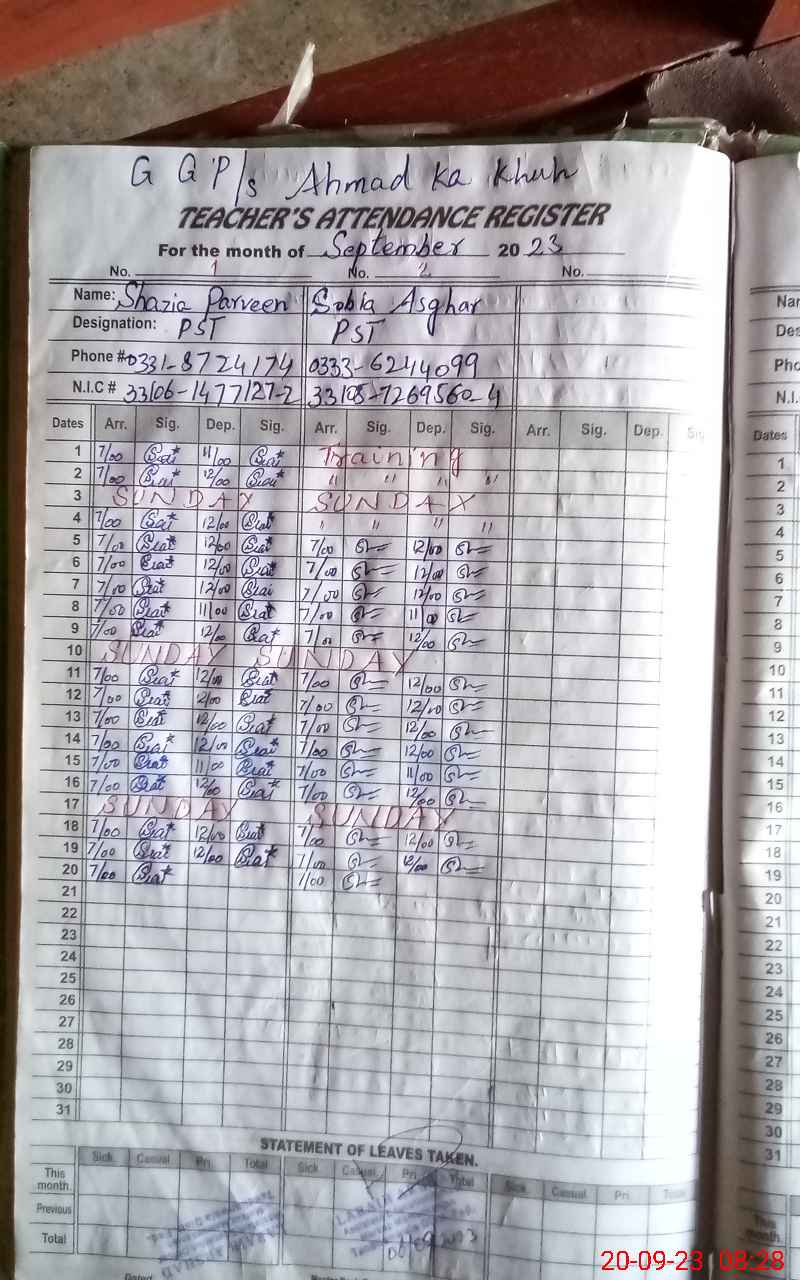 G G P/s Ahmad Ka Khuh
TEACHER'S ATTENDANCE REGISTER
For the month of September 2023
No. 1 No. 2 No.
Name: Shazia Parveen Sobia Asghar
Designation: PST PST
Phone # 0331-8724174 0333-6244099
N.I.C # 33106-1477127-2 33105-7269560-4
Dates Arr. Sig. Dep. Sig. Arr. Sig. Dep. Sig. Arr. Sig. Dep. Sig
1 7/00 11/00 Training
2 7/00 12/00 " " " "
3 SUNDAY SUNDAY
4 7/00 12/00 " " " "
5 7/00 12/00 7/00 12/00
6 7/00 12/00 7/00 12/00
7 7/00 12/00 7/00 12/00
8 7/00 11/00 7/00 11/00
9 7/00 12/00 7/00 12/00
10 SUNDAY SUNDAY
11 7/00 12/00 7/00 12/00
12 7/00 12/00 7/00 12/00
13 7/00 12/00 7/00 12/00
14 7/00 12/00 7/00 12/00
15 7/00 11/00 7/00 11/00
16 7/00 12/00 7/00 12/00
17 SUNDAY SUNDAY
18 7/00 12/00 7/00 12/00
19 7/00 12/00 7/00 12/00
20 7/00 7/00
21
22
23
24
25
26
27
28
29
30
31
STATEMENT OF LEAVES TAKEN.
Sick Casual Pri. Total Sick Casual Pri. Total Sick Casual Pri. Total
This month.
Previous
Total
Dated
Nar
Des
Pho
N.I.
Dates
1
2
3
4
5
6
7
8
9
10
11
12
13
14
15
16
17
18
19
20
21
22
23
24
25
26
27
28
29
30
31
This
month
Previous
Total
20-09-23 08:28